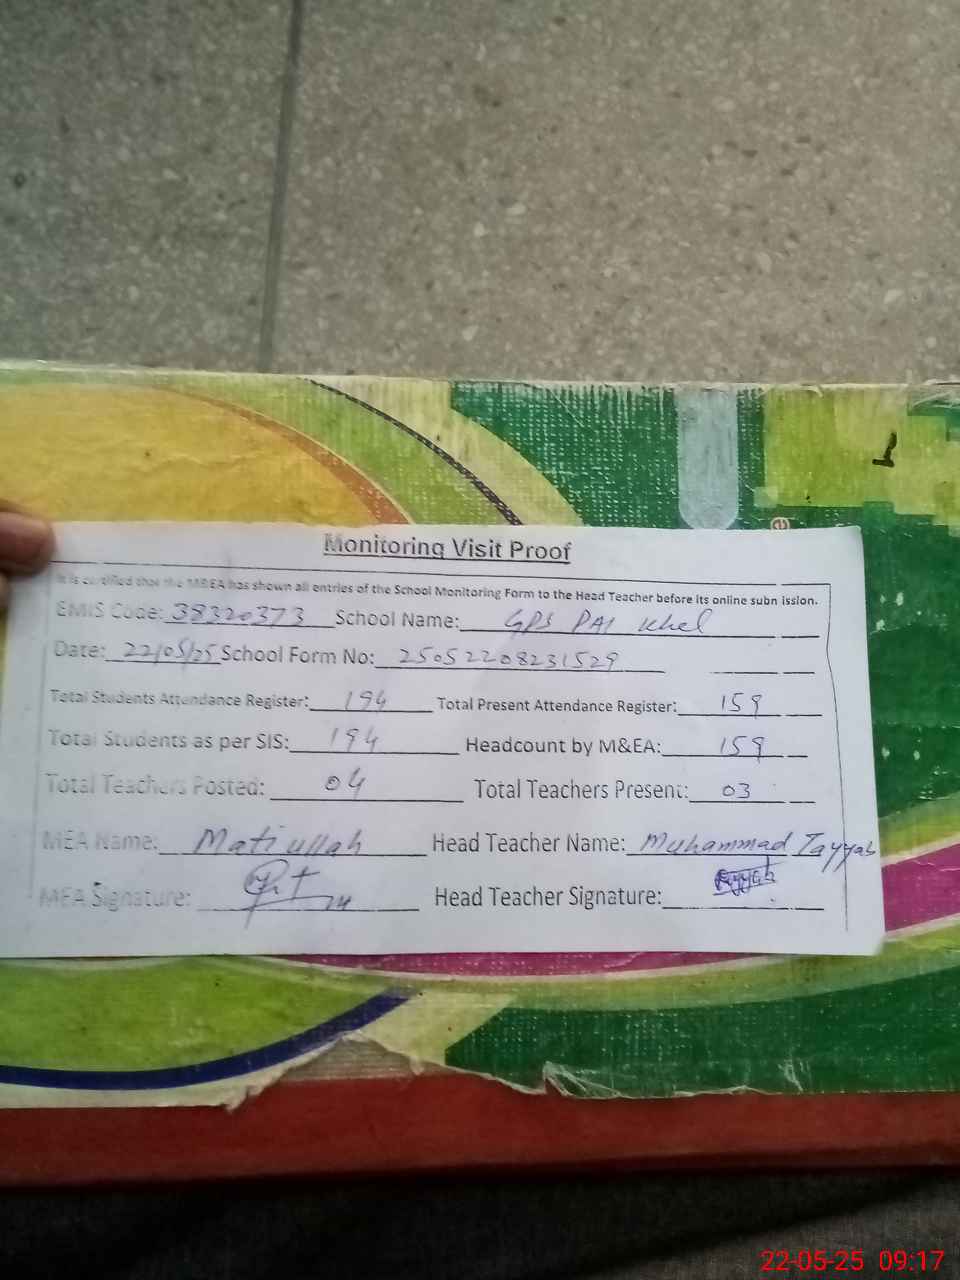 1
Monitoring Visit Proof
It is certified that the M&EA has shown all entries of the School Monitoring Form to the Head Teacher before its online subn ission.
EMIS Code: 38320373 School Name: GPS PAI Khel
Date: 22/05/25 School Form No: 25052208231529
Total Students Attendance Register: 194 Total Present Attendance Register: 159
Total Students as per SIS: 194 Headcount by M&EA: 159
Total Teachers Posted: 04 Total Teachers Present: 03
MEA Name: Matiullah Head Teacher Name: Muhammad Tayyab
MEA Signature: Head Teacher Signature:
22-05-25 09:17